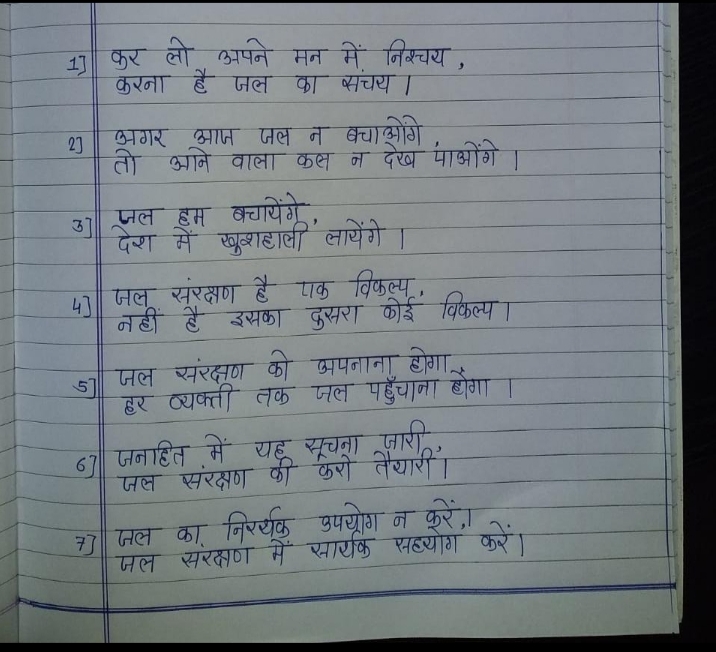 1] कर लो अपने मन में निश्चय,
करना है जल का संचय।
2] अगर आज जल न बचाओंगे,
तो आने वाला कल न देख पाओंगे।
3] जल हम बचायेंगे,
देश में खुशहाली लायेंगे।
4] जल संरक्षण है एक विकल्प,
नहीं है इसका दुसरा कोई विकल्प।
5] जल संरक्षण को अपनाना होगा,
हर व्यक्ती तक जल पहुँचाना होगा।
6] जनहित में यह सूचना जारी,
जल संरक्षण की करो तैयारी।
7] जल का निरर्थक उपयोग न करें,।
जल संरक्षण में सार्थक सहयोग करें।